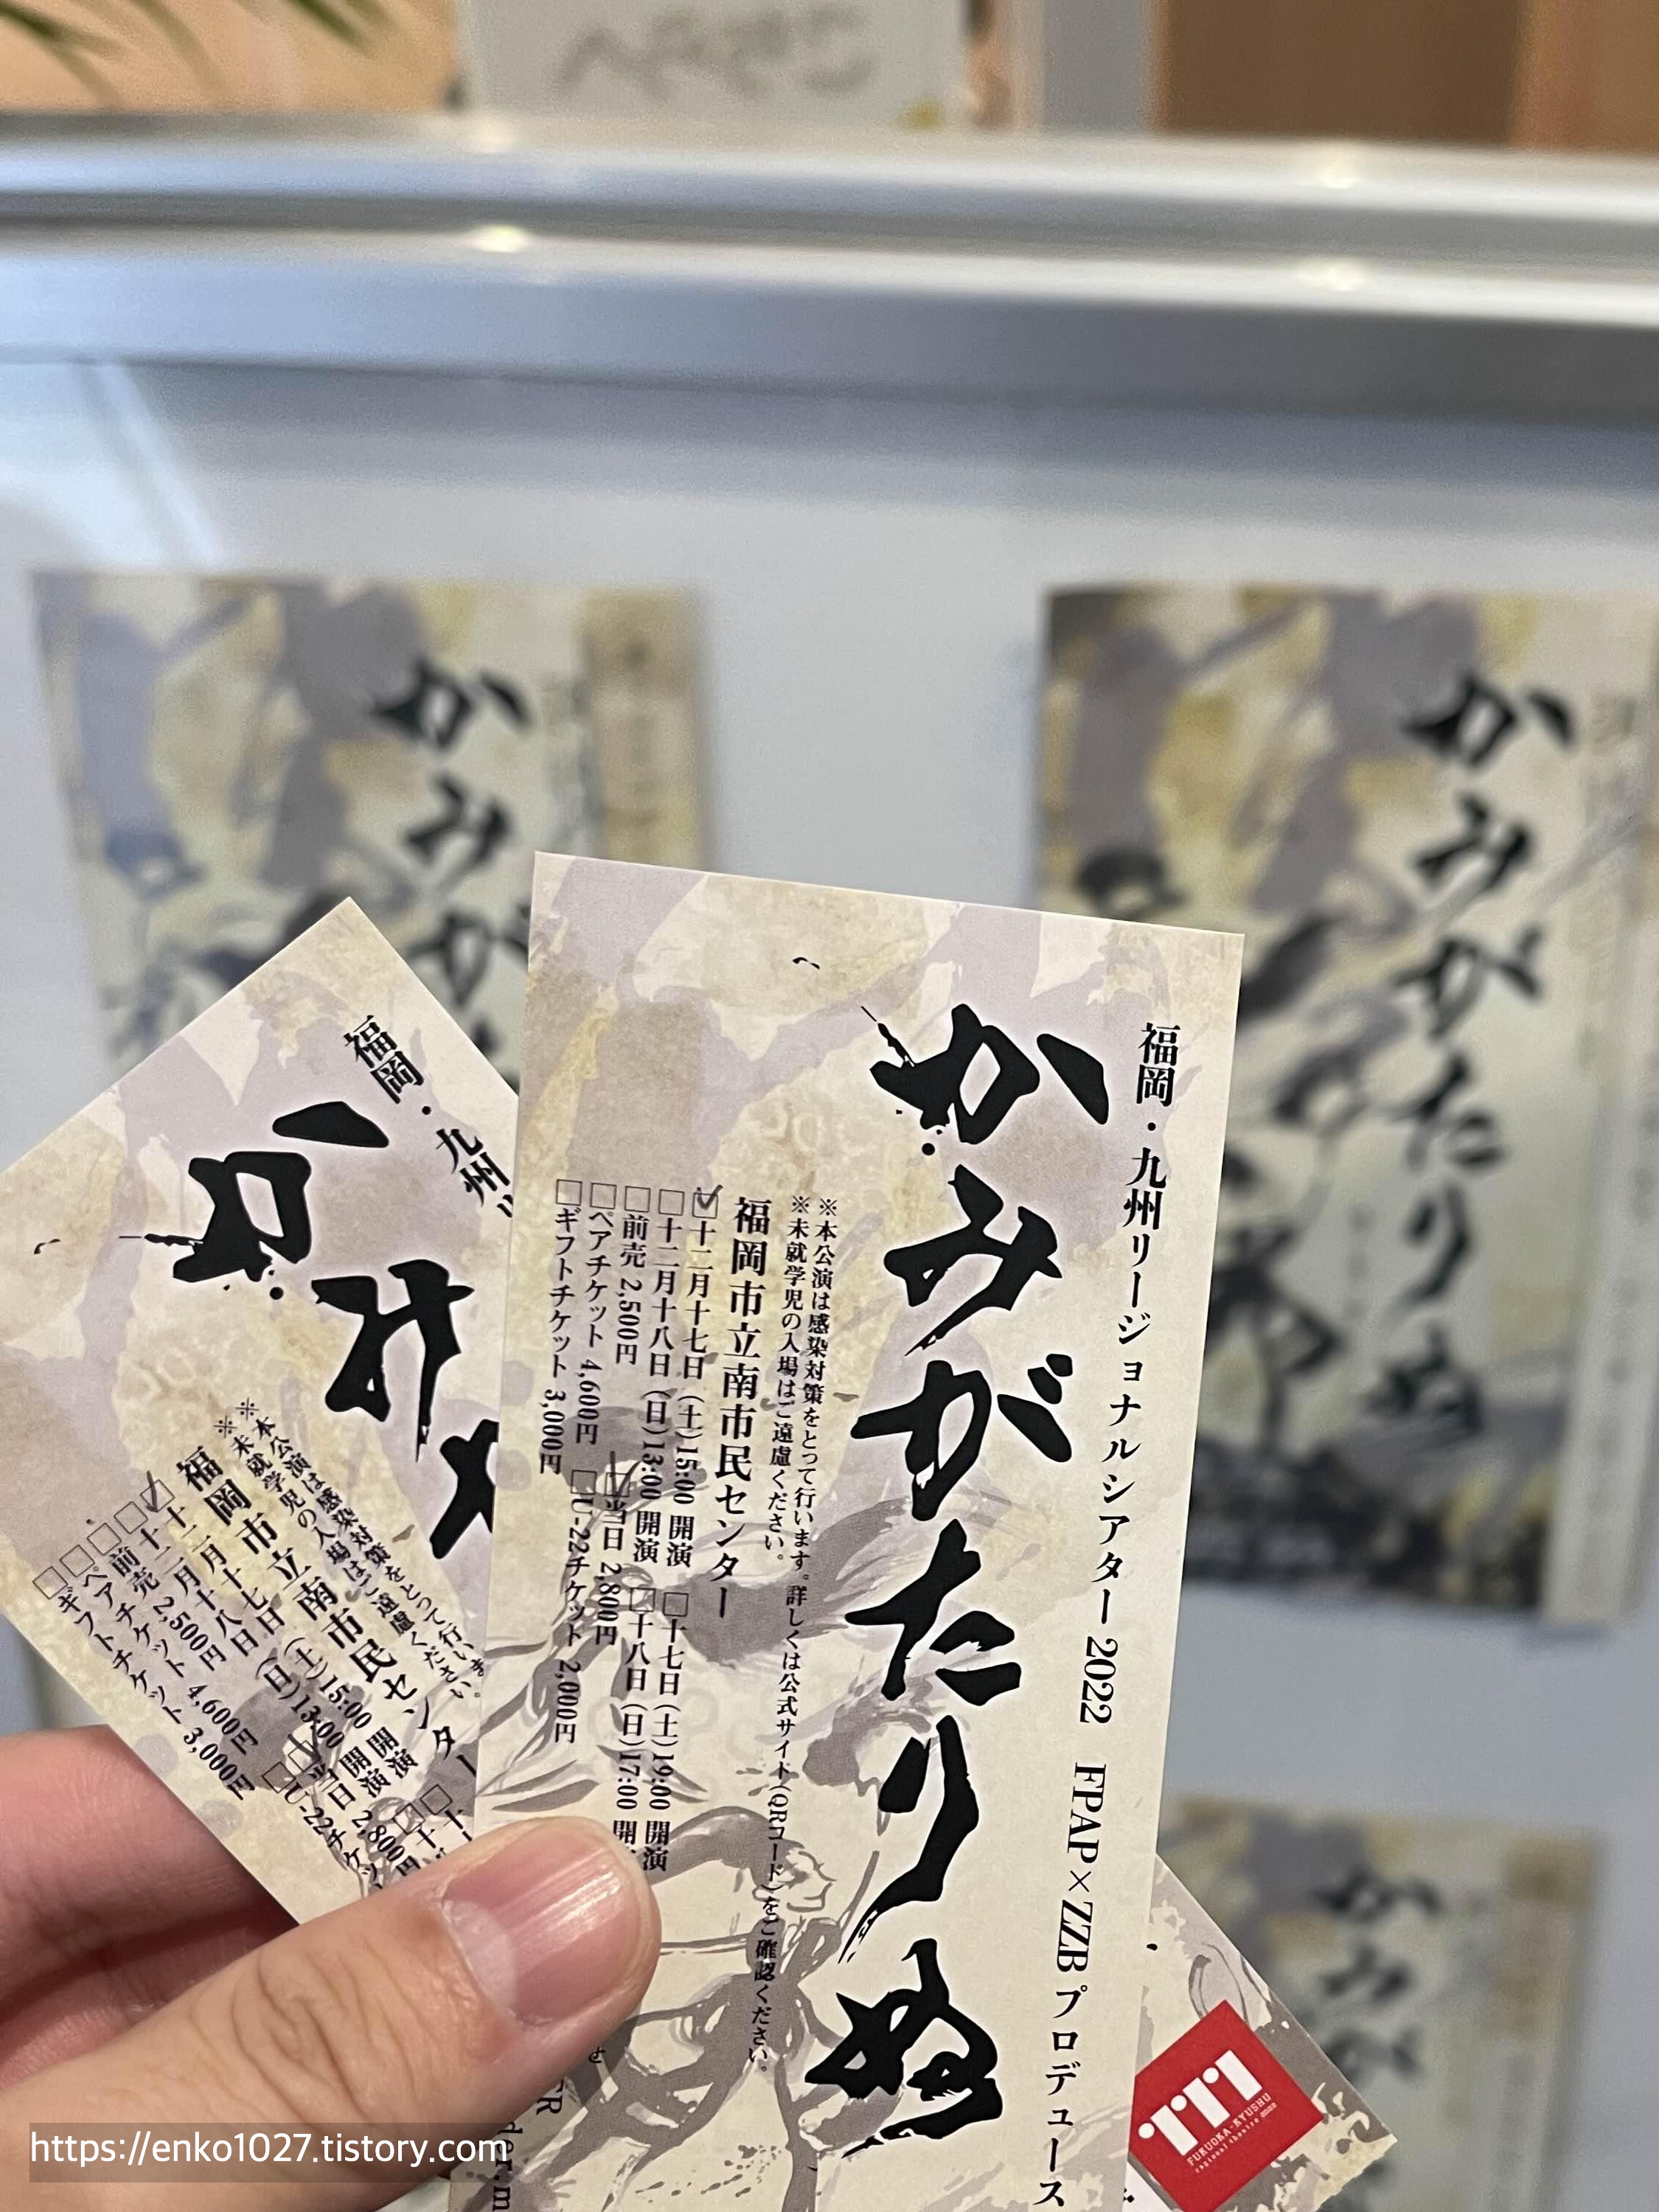 福岡・九州リージョナルシアター2022 FPAP×ZZBプロデュース
かみがたりぬ
※本公演は感染対策をとって行います。詳しくは公式サイト(QRコード)をご確認ください。
※未就学児の入場はご遠慮ください。
福岡市立南市民センター
☑十二月十七日(土)15:00 開演 □十七日(土)19:00 開演
□十二月十八日(日)13:00 開演 □十八日(日)17:00 開
□前売 2,500円 ☑当日 2,800円
□ペアチケット 4,600円 □U-22チケット 2,000円
□ギフトチケット 3,000円
福岡・九州リ
かみ
※本公演は感染対策をとって行いま
※未就学児の入場はご遠慮ください。
福岡市立南市民センター
☑十二月十七日(土)15:00 開演 □十
□十二月十八日(日)13:00 開演 □十
□前売 2,500円 ☑当日 2,800円
□ペアチケット 4,600円 □U-22チケッ
□ギフトチケット 3,000円
FUKUOKA-KYUSHU
regional theatre 2022
かみが
かみがたりぬ
かみが
https://enko1027.tistory.com